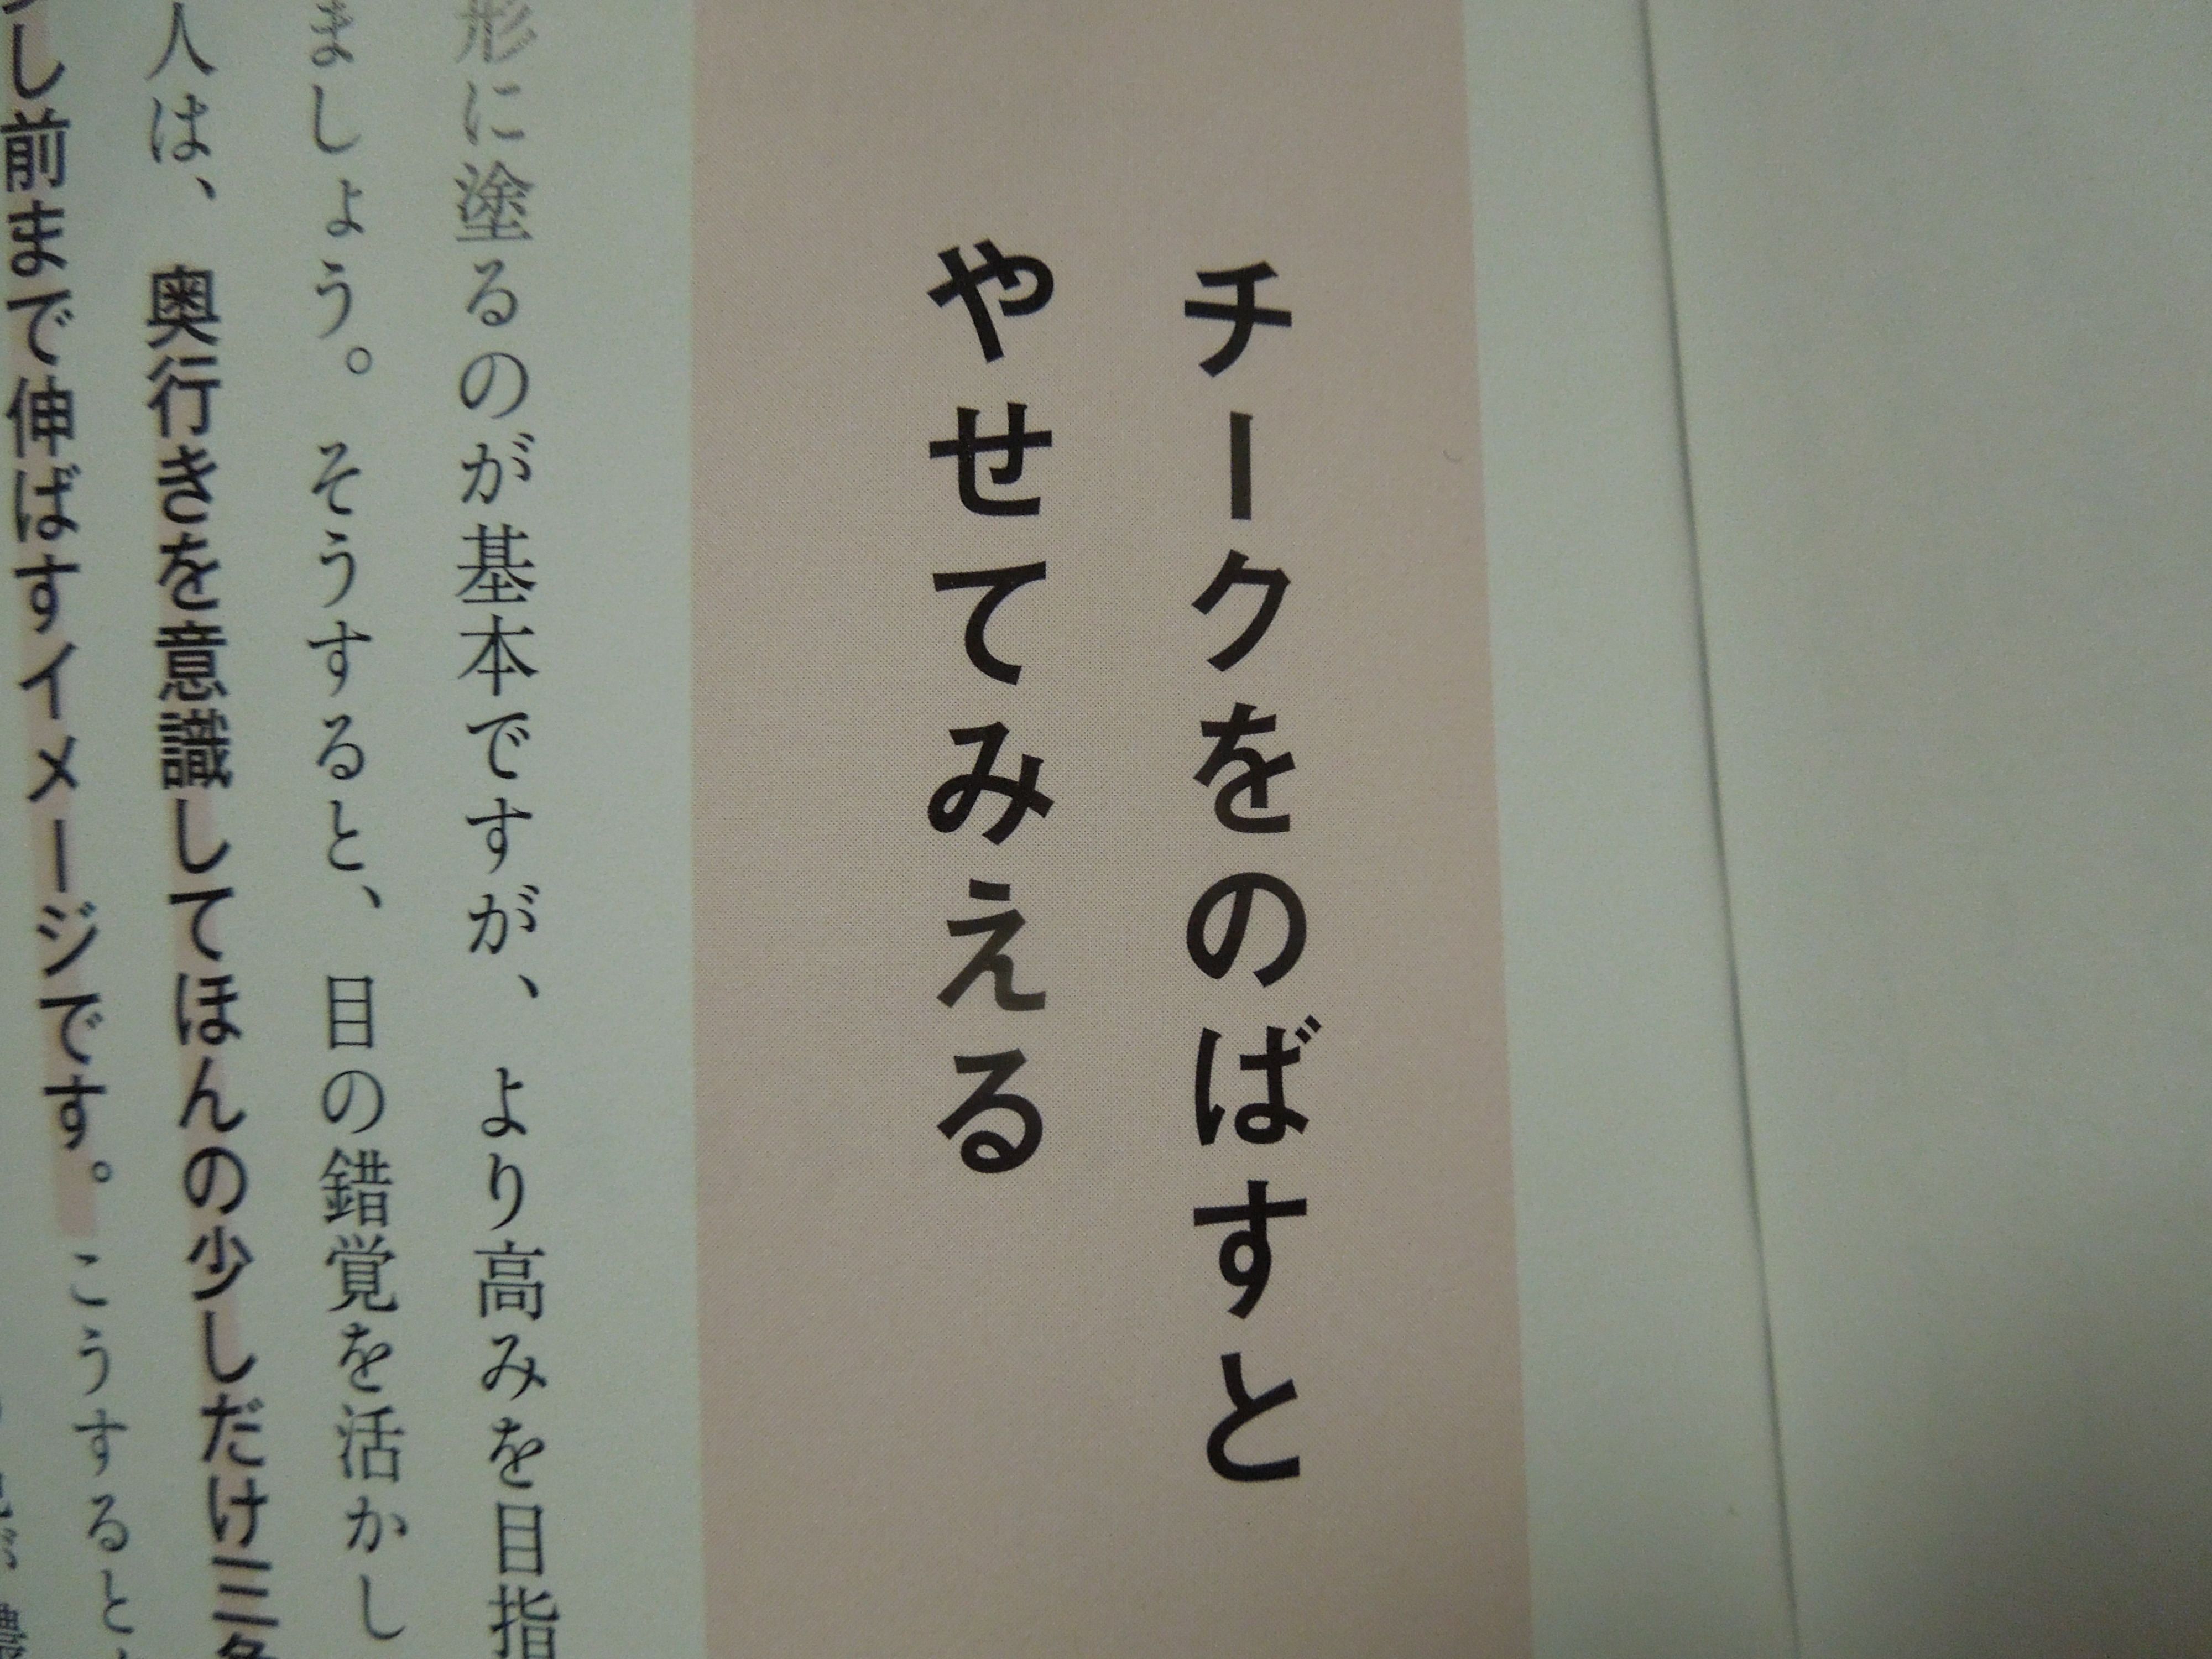 チークをのばすと
やせてみえる
形に塗るのが基本ですが、より高みを目指
ましょう。そうすると、目の錯覚を活かし
人は、奥行きを意識してほんの少しだけ三角
し前まで伸ばすイメージです。こうすると